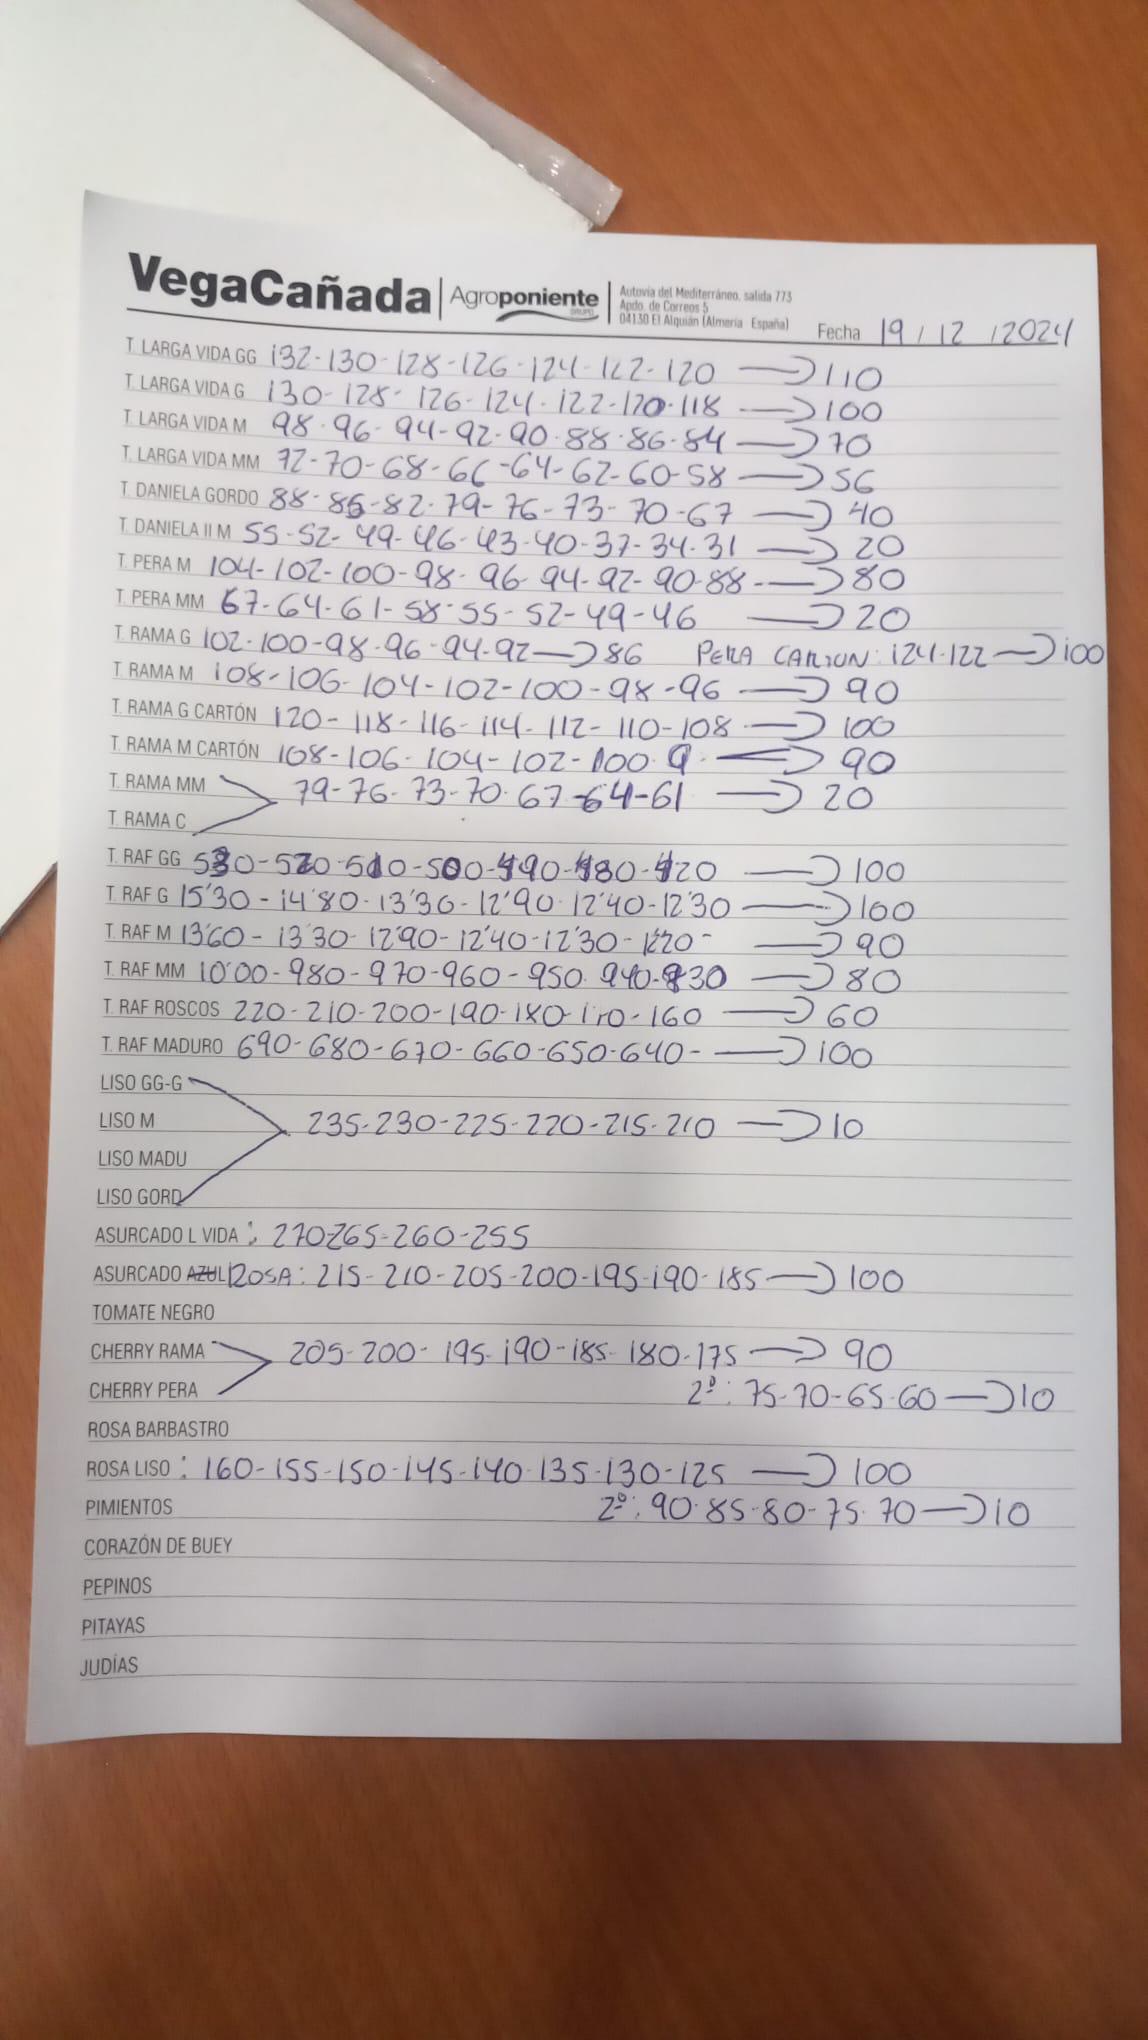 VegaCañada | Agroponiente GRUPO
Autovía del Mediterráneo, salida 773
Apdo. de Correos 5
04130 El Alquián (Almería España)
Fecha 19 / 12 / 2024
T. LARGA VIDA GG 132-130-128-126-124-122-120 → 110
T. LARGA VIDA G 130-128-126-124-122-120-118 → 100
T. LARGA VIDA M 98-96-94-92-90-88-86-84 → 70
T. LARGA VIDA MM 72-70-68-66-64-62-60-58 → 56
T. DANIELA GORDO 88-85-82-79-76-73-70-67 → 40
T. DANIELA II M 55-52-49-46-43-40-37-34-31 → 20
T. PERA M 104-102-100-98-96-94-92-90-88 → 80
T. PERA MM 67-64-61-58-55-52-49-46 → 20
T. RAMA G 102-100-98-96-94-92 → 86 PERA CARTON: 124-122 → 100
T. RAMA M 108-106-104-102-100-98-96 → 90
T. RAMA G CARTÓN 120-118-116-114-112-110-108 → 100
T. RAMA M CARTÓN 108-106-104-102-100 → 90
T. RAMA MM 79-76-73-70-67-64-61 → 20
T. RAMA C
T. RAF GG 530-520-510-500-490-480-420 → 100
T. RAF G 15'30-14'80-13'30-12'90-12'40-12'30 → 100
T. RAF M 13'60-13'30-12'90-12'40-12'30-12'20- → 90
T. RAF MM 10'00-980-970-960-950-940-930 → 80
T. RAF ROSCOS 220-210-200-190-180-170-160 → 60
T. RAF MADURO 690-680-670-660-650-640- → 100
LISO GG-G
LISO M 235-230-225-220-215-210 → 10
LISO MADU
LISO GORD
ASURCADO L VIDA : 270-265-260-255
ASURCADO AZUL ROSA: 215-210-205-200-195-190-185 → 100
TOMATE NEGRO
CHERRY RAMA 205-200-195-190-185-180-175 → 90
CHERRY PERA 2º: 75-70-65-60 → 10
ROSA BARBASTRO
ROSA LISO : 160-155-150-145-140-135-130-125 → 100
PIMIENTOS 2º: 90-85-80-75-70 → 10
CORAZÓN DE BUEY
PEPINOS
PITAYAS
JUDÍAS